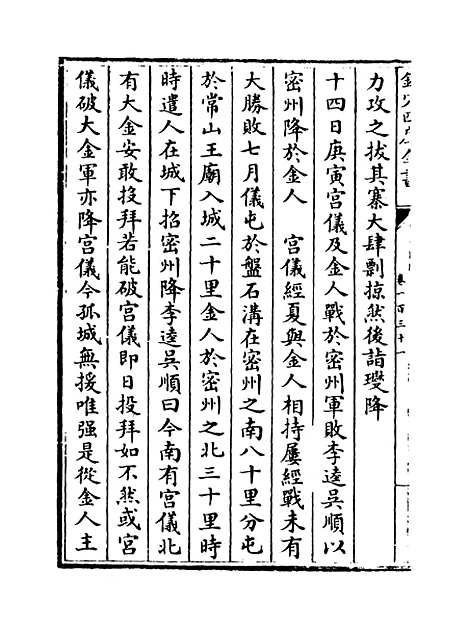 力攻之拔其寨大肆剽掠然後詣璴降
十四日庚寅宫儀及金人戰於密州軍敗李逵吳順以
密州降於金人　宫儀經夏與金人相持屢經戰未有
大勝敗七月儀屯於盤石溝在密州之南八十里分屯
於常山王廟入城二十里金人於密州之北三十里時
時遣人在城下招密州降李逵吳順曰今南有宫儀北
有大金安敢投拜若能破宫儀即日投拜如不然或宫
儀破大金軍亦降宫儀今孤城無援唯强是從金人主